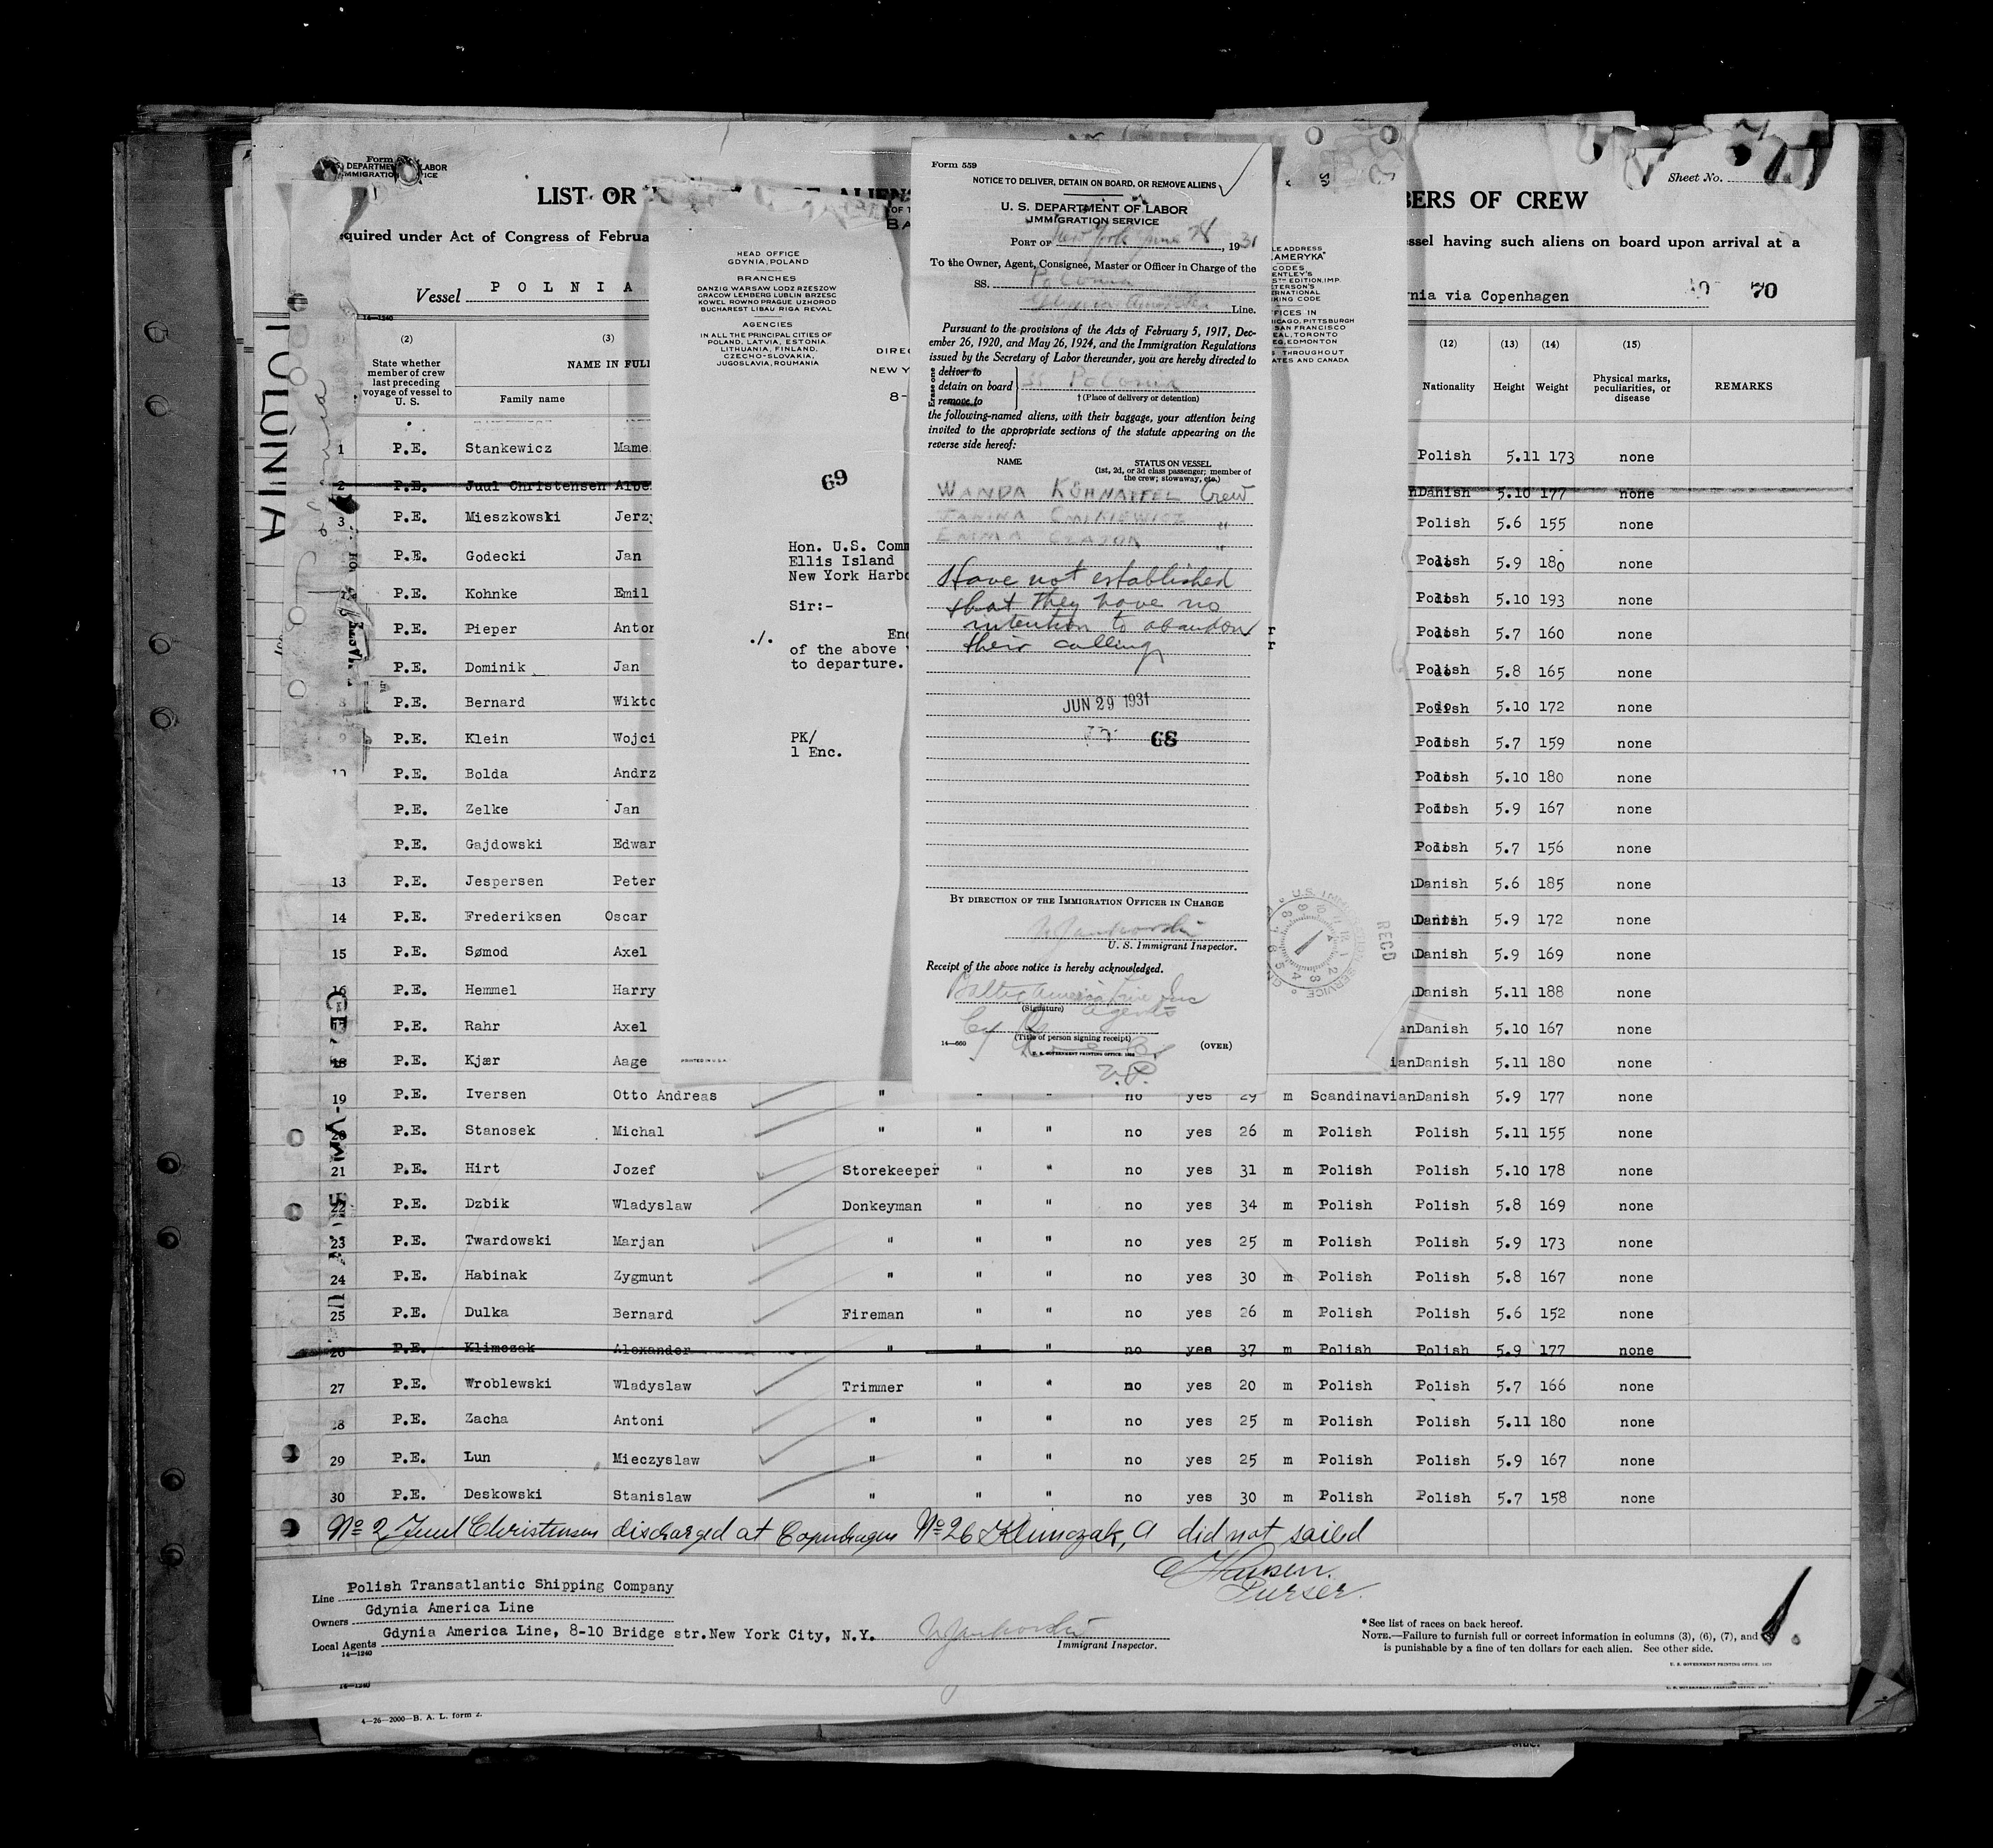 Form
DEPARTMEN LABOR
IMMIGRATIO ICE
Sheet No.
LIST OR
ALIEN
BERS OF CREW
quired under Act of Congress of Februa
ssel having such aliens on board upon arrival at a
Vessel POLNIA
rnia via Copenhagen
70
14—1240
(2)
State whether
member of crew
last preceding
voyage of vessel to
U. S.
(3)
NAME IN FULL
Family name
(12)
Nationality
(13)
Height
(14)
Weight
(15)
Physical marks,
peculiarities, or
disease
REMARKS
HEAD OFFICE
GDYNIA, POLAND
BRANCHES
DANZIG WARSAW LODZ RZESZOW
CRACOW LEMBERG LUBLIN BRZESC
KOWEL ROWNO PRAGUE UZHOROD
BUCHAREST LIBAU RIGA REVAL
AGENCIES
IN ALL THE PRINCIPAL CITIES OF
POLAND, LATVIA, ESTONIA
LITHUANIA, FINLAND,
CZECHO-SLOVAKIA,
JUGOSLAVIA, ROUMANIA
DIREC
NEW Y
8-
69
Hon. U.S. Comm
Ellis Island
New York Harbo
Sir:-
./. Enc
of the above
to departure.
PK/
1 Enc.
PRINTED IN U.S.A.
LE ADDRESS
AMERYKA"
CODES
ENTLEY'S
5TH EDITION.IMP.
ETERSON'S
ERNATIONAL
KING CODE
FFICES IN
HICAGO, PITTSBURGH
SAN FRANCISCO
EAL, TORONTO
EG, EDMONTON
S THROUGHOUT
ATES AND CANADA
RECD
Form 559
NOTICE TO DELIVER, DETAIN ON BOARD, OR REMOVE ALIENS
U. S. DEPARTMENT OF LABOR
IMMIGRATION SERVICE
PORT OF New York June 28, 1931
To the Owner, Agent, Consignee, Master or Officer in Charge of the
SS. Polonia
Gdynia America Line.
Pursuant to the provisions of the Acts of February 5, 1917, Dec-
ember 26, 1920, and May 26, 1924, and the Immigration Regulations
issued by the Secretary of Labor thereunder, you are hereby directed to
Erase one
deliver to
detain on board
remove to
SS Polonia
† (Place of delivery or detention)
the following-named aliens, with their baggage, your attention being
invited to the appropriate sections of the statute appearing on the
reverse side hereof:
NAME
STATUS ON VESSEL
(1st, 2d, or 3d class passenger; member of
the crew; stowaway, etc.)
WANDA Crew
JANINA "
EMMA "
Have not established
that they have no
intention to abandon
their calling
JUN 29 1931
68
BY DIRECTION OF THE IMMIGRATION OFFICER IN CHARGE
U. S. Immigrant Inspector.
Receipt of the above notice is hereby acknowledged.
Baltic America Line Inc
(Signature) agents
(Title of person signing receipt)
14—660
U. S. GOVERNMENT PRINTING OFFICE
(OVER)
V.P.
1 P.E. Stankewicz Mame Polish 5.11 173 none
2 P.E. Juul Christensen Albe nDanish 5.10 177 none
3 P.E. Mieszkowski Jerzy Polish 5.6 155 none
P.E. Godecki Jan Polish 5.9 180 none
P.E. Kohnke Emil Polish 5.10 193 none
P.E. Pieper Anton Polish 5.7 160 none
P.E. Dominik Jan Polish 5.8 165 none
8 P.E. Bernard Wikto Polish 5.10 172 none
9 P.E. Klein Wojci Polish 5.7 159 none
10 P.E. Bolda Andrz Polish 5.10 180 none
P.E. Zelke Jan Polish 5.9 167 none
P.E. Gajdowski Edwar Polish 5.7 156 none
13 P.E. Jespersen Peter nDanish 5.6 185 none
14 P.E. Frederiksen Oscar Danish 5.9 172 none
15 P.E. Sømod Axel nDanish 5.9 169 none
16 P.E. Hemmel Harry nDanish 5.11 188 none
17 P.E. Rahr Axel anDanish 5.10 167 none
18 P.E. Kjær Aage ianDanish 5.11 180 none
19 P.E. Iversen Otto Andreas " " " no yes 29 m ScandinavianDanish 5.9 177 none
20 P.E. Stanosek Michal " " " no yes 26 m Polish Polish 5.11 155 none
21 P.E. Hirt Jozef Storekeeper " " no yes 31 m Polish Polish 5.10 178 none
22 P.E. Dzbik Wladyslaw Donkeyman " " no yes 34 m Polish Polish 5.8 169 none
23 P.E. Twardowski Marjan " " " no yes 25 m Polish Polish 5.9 173 none
24 P.E. Habinak Zygmunt " " " no yes 30 m Polish Polish 5.8 167 none
25 P.E. Dulka Bernard Fireman " " no yes 26 m Polish Polish 5.6 152 none
26 P.E. Klimczak Alexander " " " no yes 37 m Polish Polish 5.9 177 none
27 P.E. Wroblewski Wladyslaw Trimmer " " no yes 20 m Polish Polish 5.7 166 none
28 P.E. Zacha Antoni " " " no yes 25 m Polish Polish 5.11 180 none
29 P.E. Lun Mieczyslaw " " " no yes 25 m Polish Polish 5.9 167 none
30 P.E. Deskowski Stanislaw " " " no yes 30 m Polish Polish 5.7 158 none
No 2 Juul Christensen discharged at Copenhagen No 26 Klimczak, A did not sailed
Hansen.
Purser.
Line Polish Transatlantic Shipping Company
Owners Gdynia America Line
Local Agents Gdynia America Line, 8-10 Bridge str.New York City, N.Y.
14—1240
Immigrant Inspector.
*See list of races on back hereof.
NOTE.—Failure to furnish full or correct information in columns (3), (6), (7), and
is punishable by a fine of ten dollars for each alien. See other side.
U. S. GOVERNMENT PRINTING OFFICE
14—1240
4—26—2000—B. A. L. form 2.